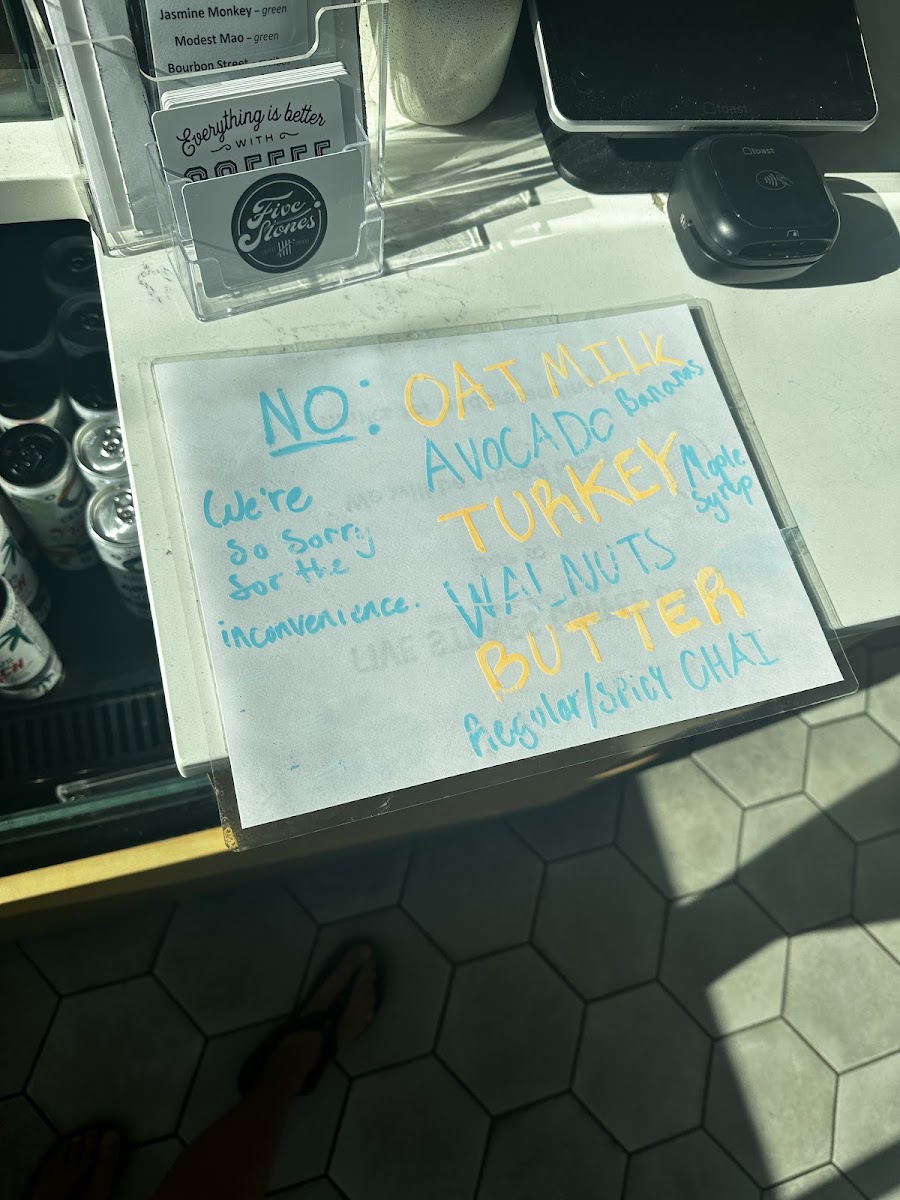 Jasmine Monkey – green
Modest Mao – green
Bourbon Street
Everything is better
WITH
COFFEE
Five
Stones
toast
toast
NO: OAT MILK
Bananas
AVOCADO
TURKEY
Maple
Syrup
WALNUTS
BUTTER
Regular/Spicy CHAI
We're
so sorry
for the
inconvenience.